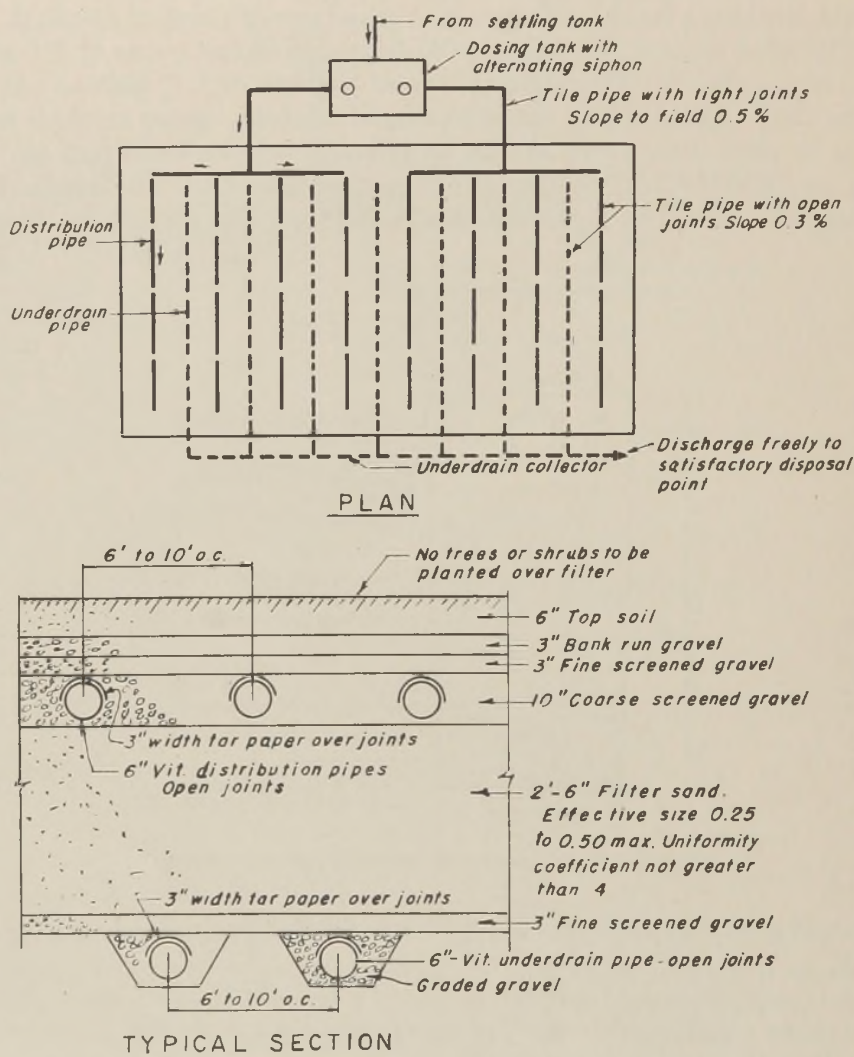 From settling tank
Dosing tank with
alternating siphon
Tile pipe with tight joints
Slope to field 0.5 %
Distribution
pipe
Tile pipe with open
joints Slope 0.3 %
Underdrain
pipe
Underdrain collector
Discharge freely to
satisfactory disposal
point
PLAN
6' to 10' o.c.
No trees or shrubs to be
planted over filter
6" Top soil
3" Bank run gravel
3" Fine screened gravel
10" Coarse screened gravel
3" width tar paper over joints
6" Vit. distribution pipes
Open joints
2'-6" Filter sand.
Effective size 0.25
to 0.50 max. Uniformity
coefficient not greater
than 4
3" width tar paper over joints
3" Fine screened gravel
6"-Vit. underdrain pipe-open joints
Graded gravel
6' to 10' o.c.
TYPICAL SECTION